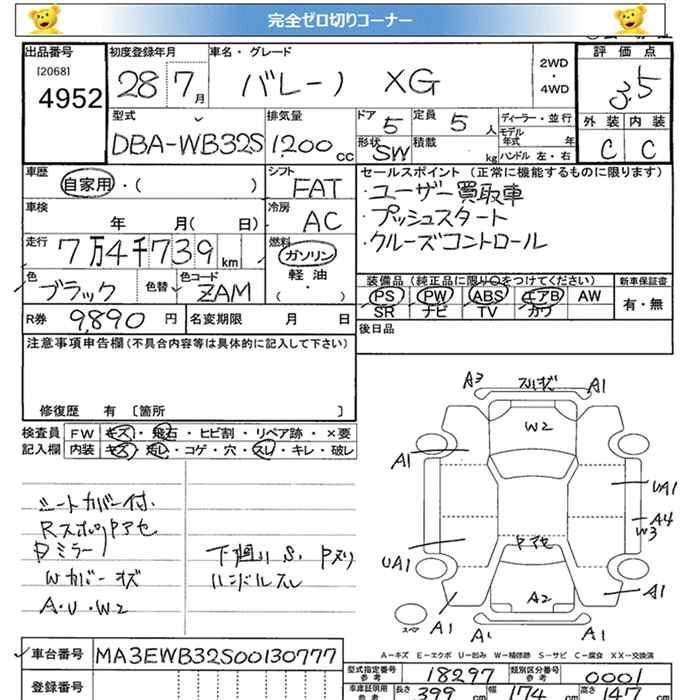 完全ゼロ切りコーナー
出品番号 初度登録年月 車名・グレード 評価点
[2068]
4952 28 7月 バレーノ XG 2WD・4WD 3.5
型式 排気量 ドア 定員 ディーラー・並行 外装 内装
DBA-WB32S 1200cc 5 5人 モデル年式 年 C C
形状 SW 積載 kg ハンドル 左・右
車歴 自家用・( ) シフト FAT
セールスポイント(正常に機能するものに限ります)
・ユーザー買取車
・プッシュスタート
・クルーズコントロール
車検 年 月( 日) 冷房 AC
走行 7万4千739km 燃料 ガソリン 軽油 ( )
色 ブラック 色替 色コード ZAM
装備品(純正品に限り○をつけてください) 新車保証書
PS PW ABS エアB AW 有・無
SR ナビ TV カワ
R券 9,890円 名変期限 月 日
後日品
注意事項申告欄(不具合内容等は具体的に記入して下さい)
修復歴 有 〔箇所 〕
検査員 FW キズ・飛石・ヒビ割・リペア跡・×要
記入欄 内装 キズ・汚レ・コゲ・穴・スレ・キレ・破レ
シートカバー付.
Rスポイラアセ
Dミラー
Wカバーキズ
A・U・W2
下廻りS.Pヌリ
ハンドルスレ
A3 A1
W2
A1 UA1
A4
W3
UA1 Pアセ
A2 A1
A1 A1
スペア
A-キズ E-エクボ U-凹み W-補修跡 S-サビ C-腐食 XX-交換済
車台番号 MA3EWB32S00130777
型式指定番号 参考 18297 類別区分番号 参考 0001
登録番号
車庫証明用 参考 長さ 399cm 幅 174cm 高さ 147cm